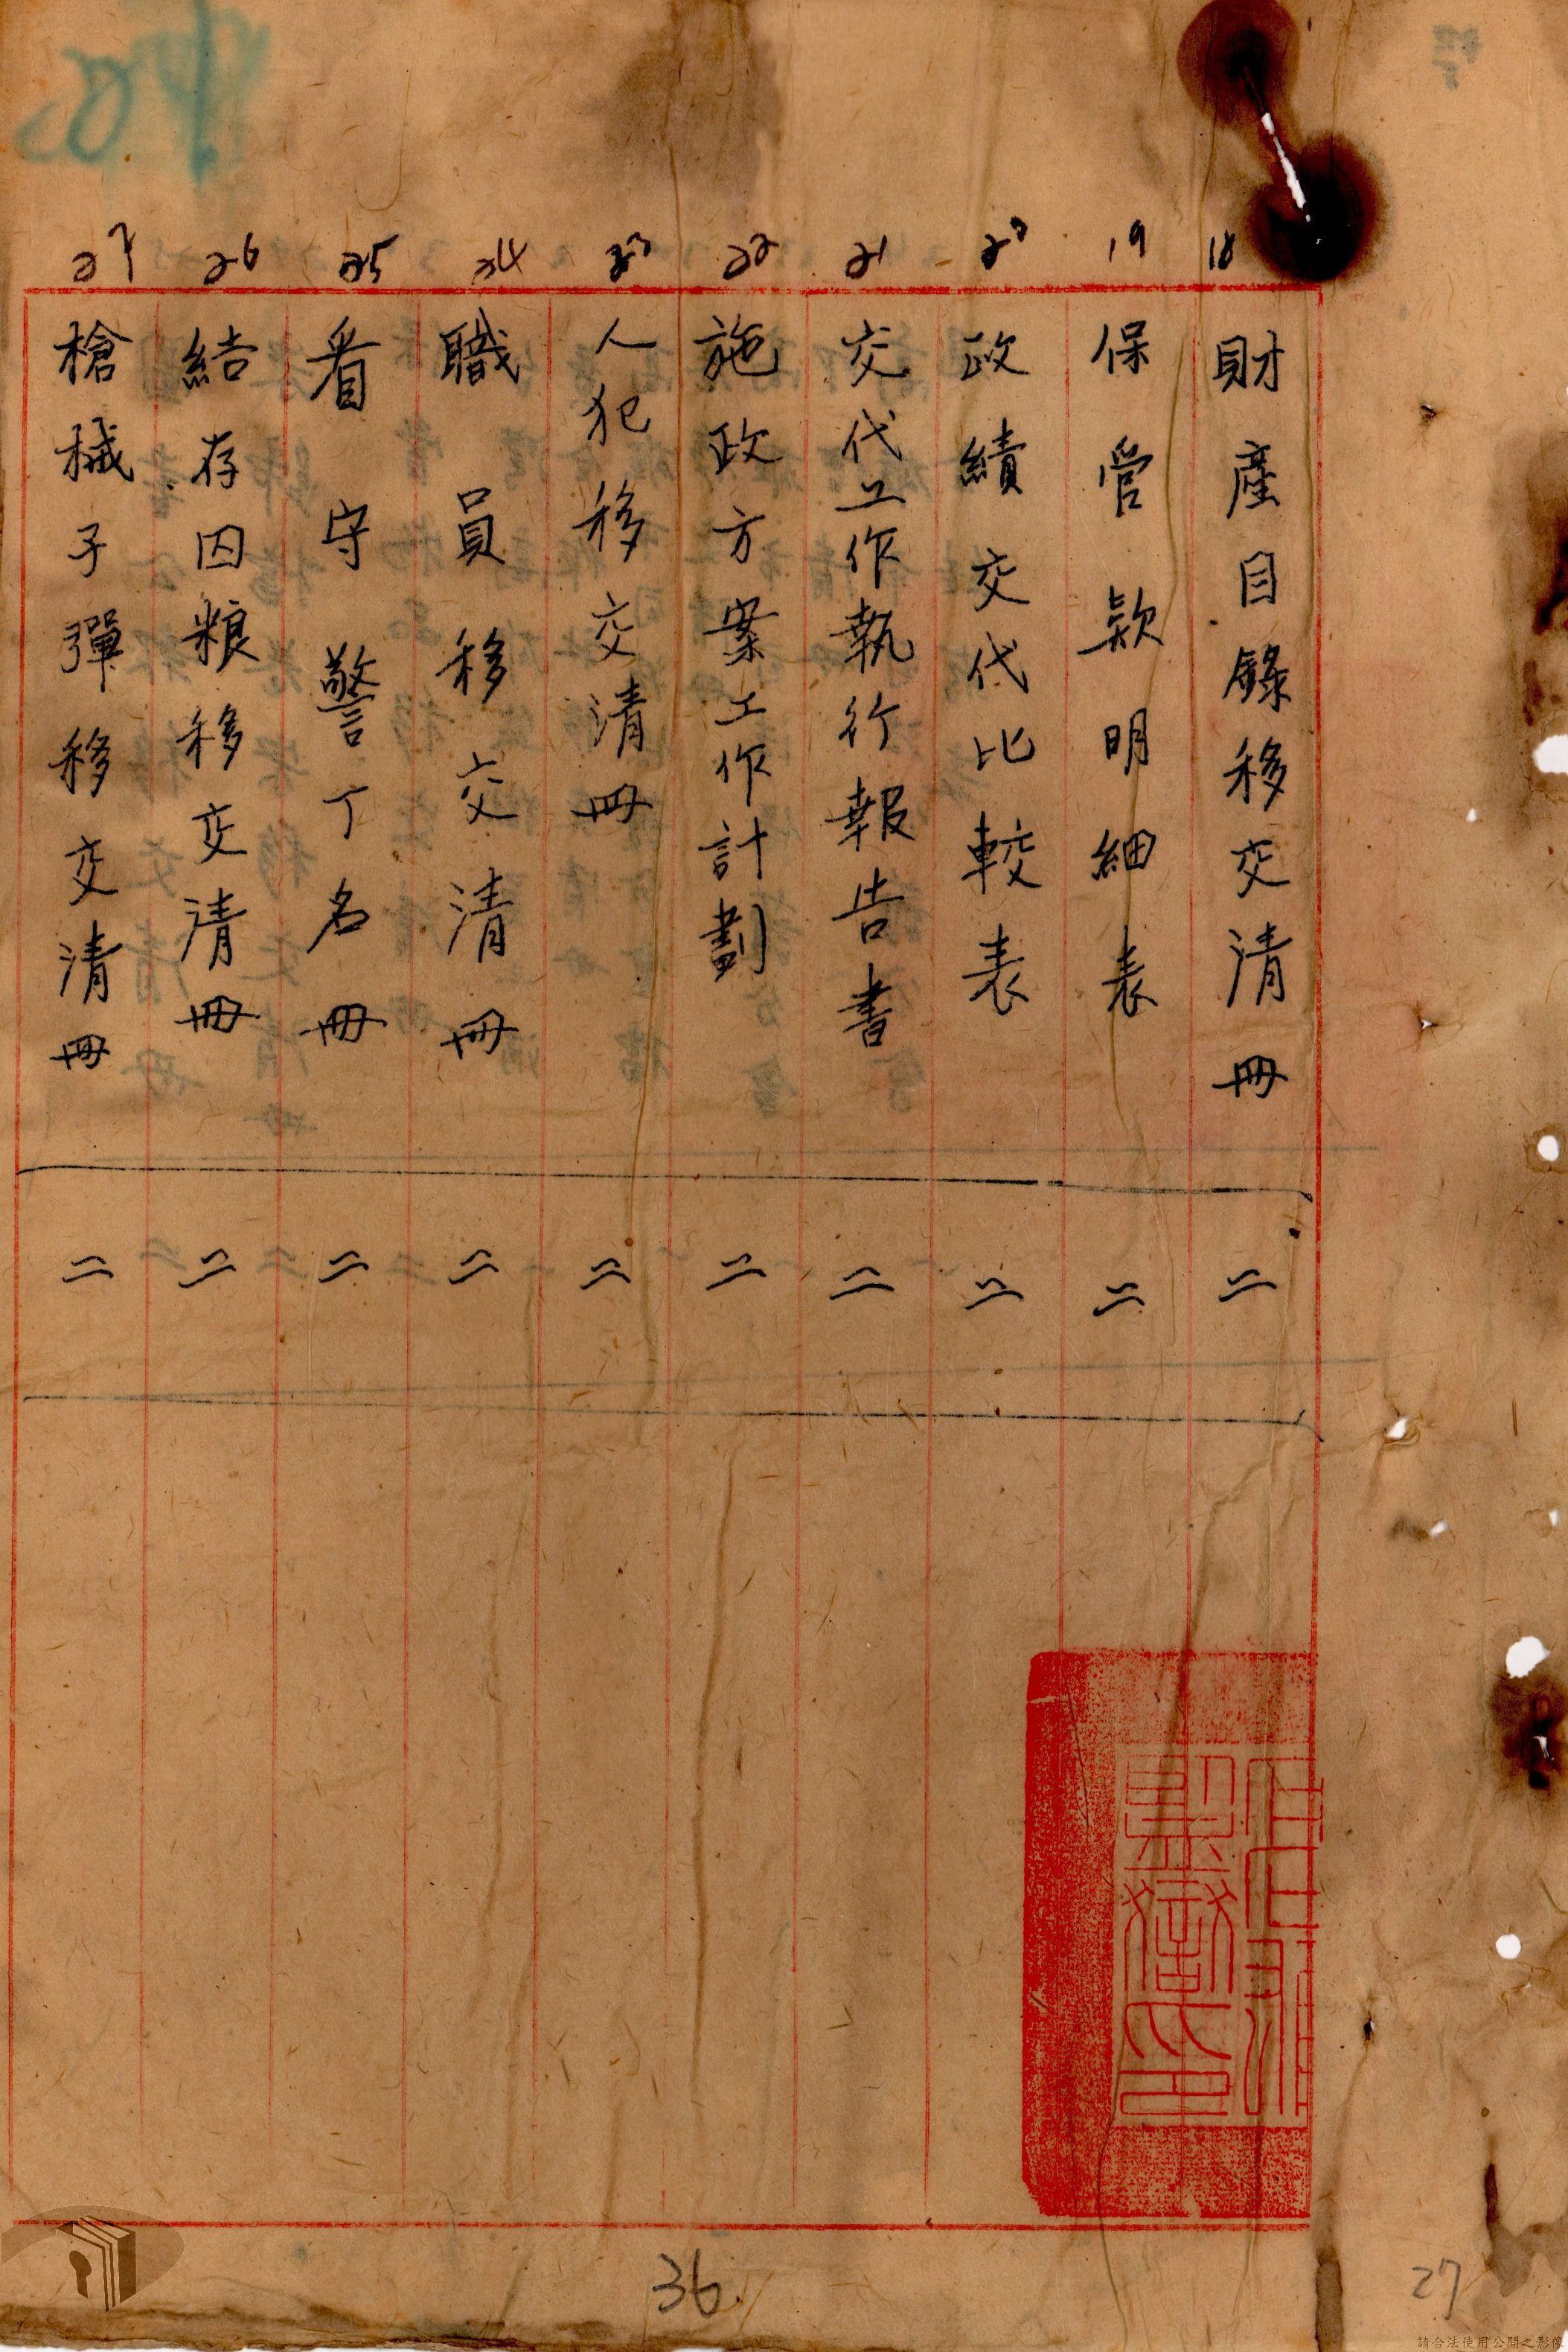 18 財產目錄移交清冊 二
19 保管款明細表 二
20 政績交代比較表 二
21 交代工作執行報告書 二
22 施政方案工作計劃 二
23 人犯移交清冊 二
24 職員移交清冊 二
25 看守警丁名冊 二
26 結存囚粮移交清冊 二
27 槍械子彈移交清冊 二
36
27
請合法使用公開之影像